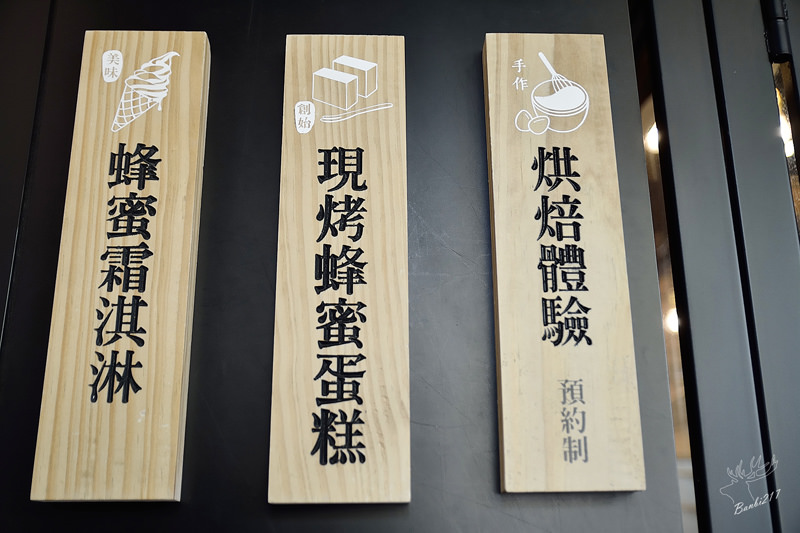 美味
蜂蜜霜淇淋
創始
現烤蜂蜜蛋糕
手作
烘焙體驗
預約制
Banbi217